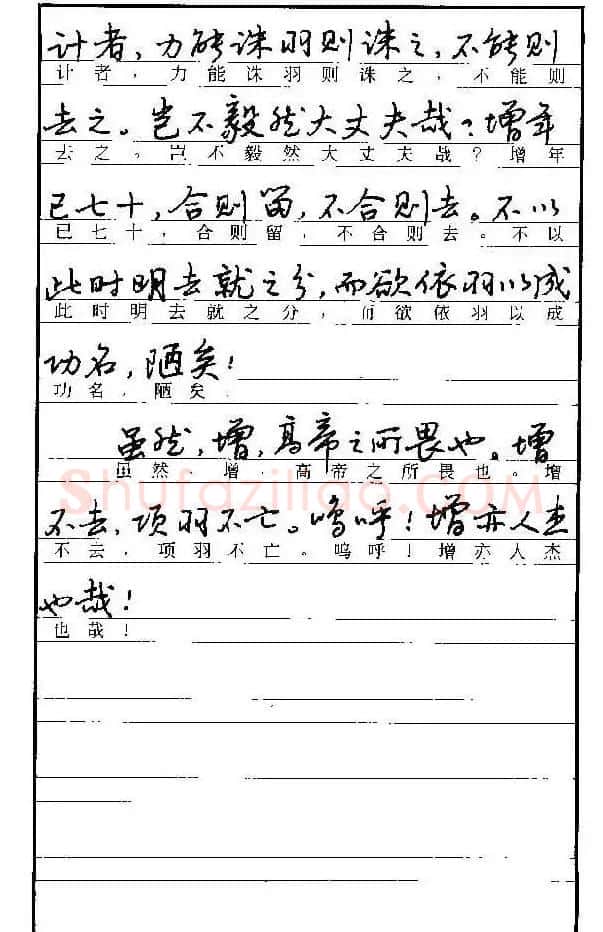 计者，力能诛羽则诛之，不能则
计者，力能诛羽则诛之，不能则
去之。岂不毅然大丈夫哉？增年
去之。岂不毅然大丈夫哉？增年
已七十，合则留，不合则去。不以
已七十，合则留，不合则去。不以
此时明去就之分，而欲依羽以成
此时明去就之分，而欲依羽以成
功名，陋矣！
功名，陋矣
虽然，增，高帝之所畏也。增
虽然，增，高帝之所畏也。增
Shufaziliao.COM
不去，项羽不亡。呜呼！增亦人杰
不去，项羽不亡。呜呼！增亦人杰
也哉！
也哉！